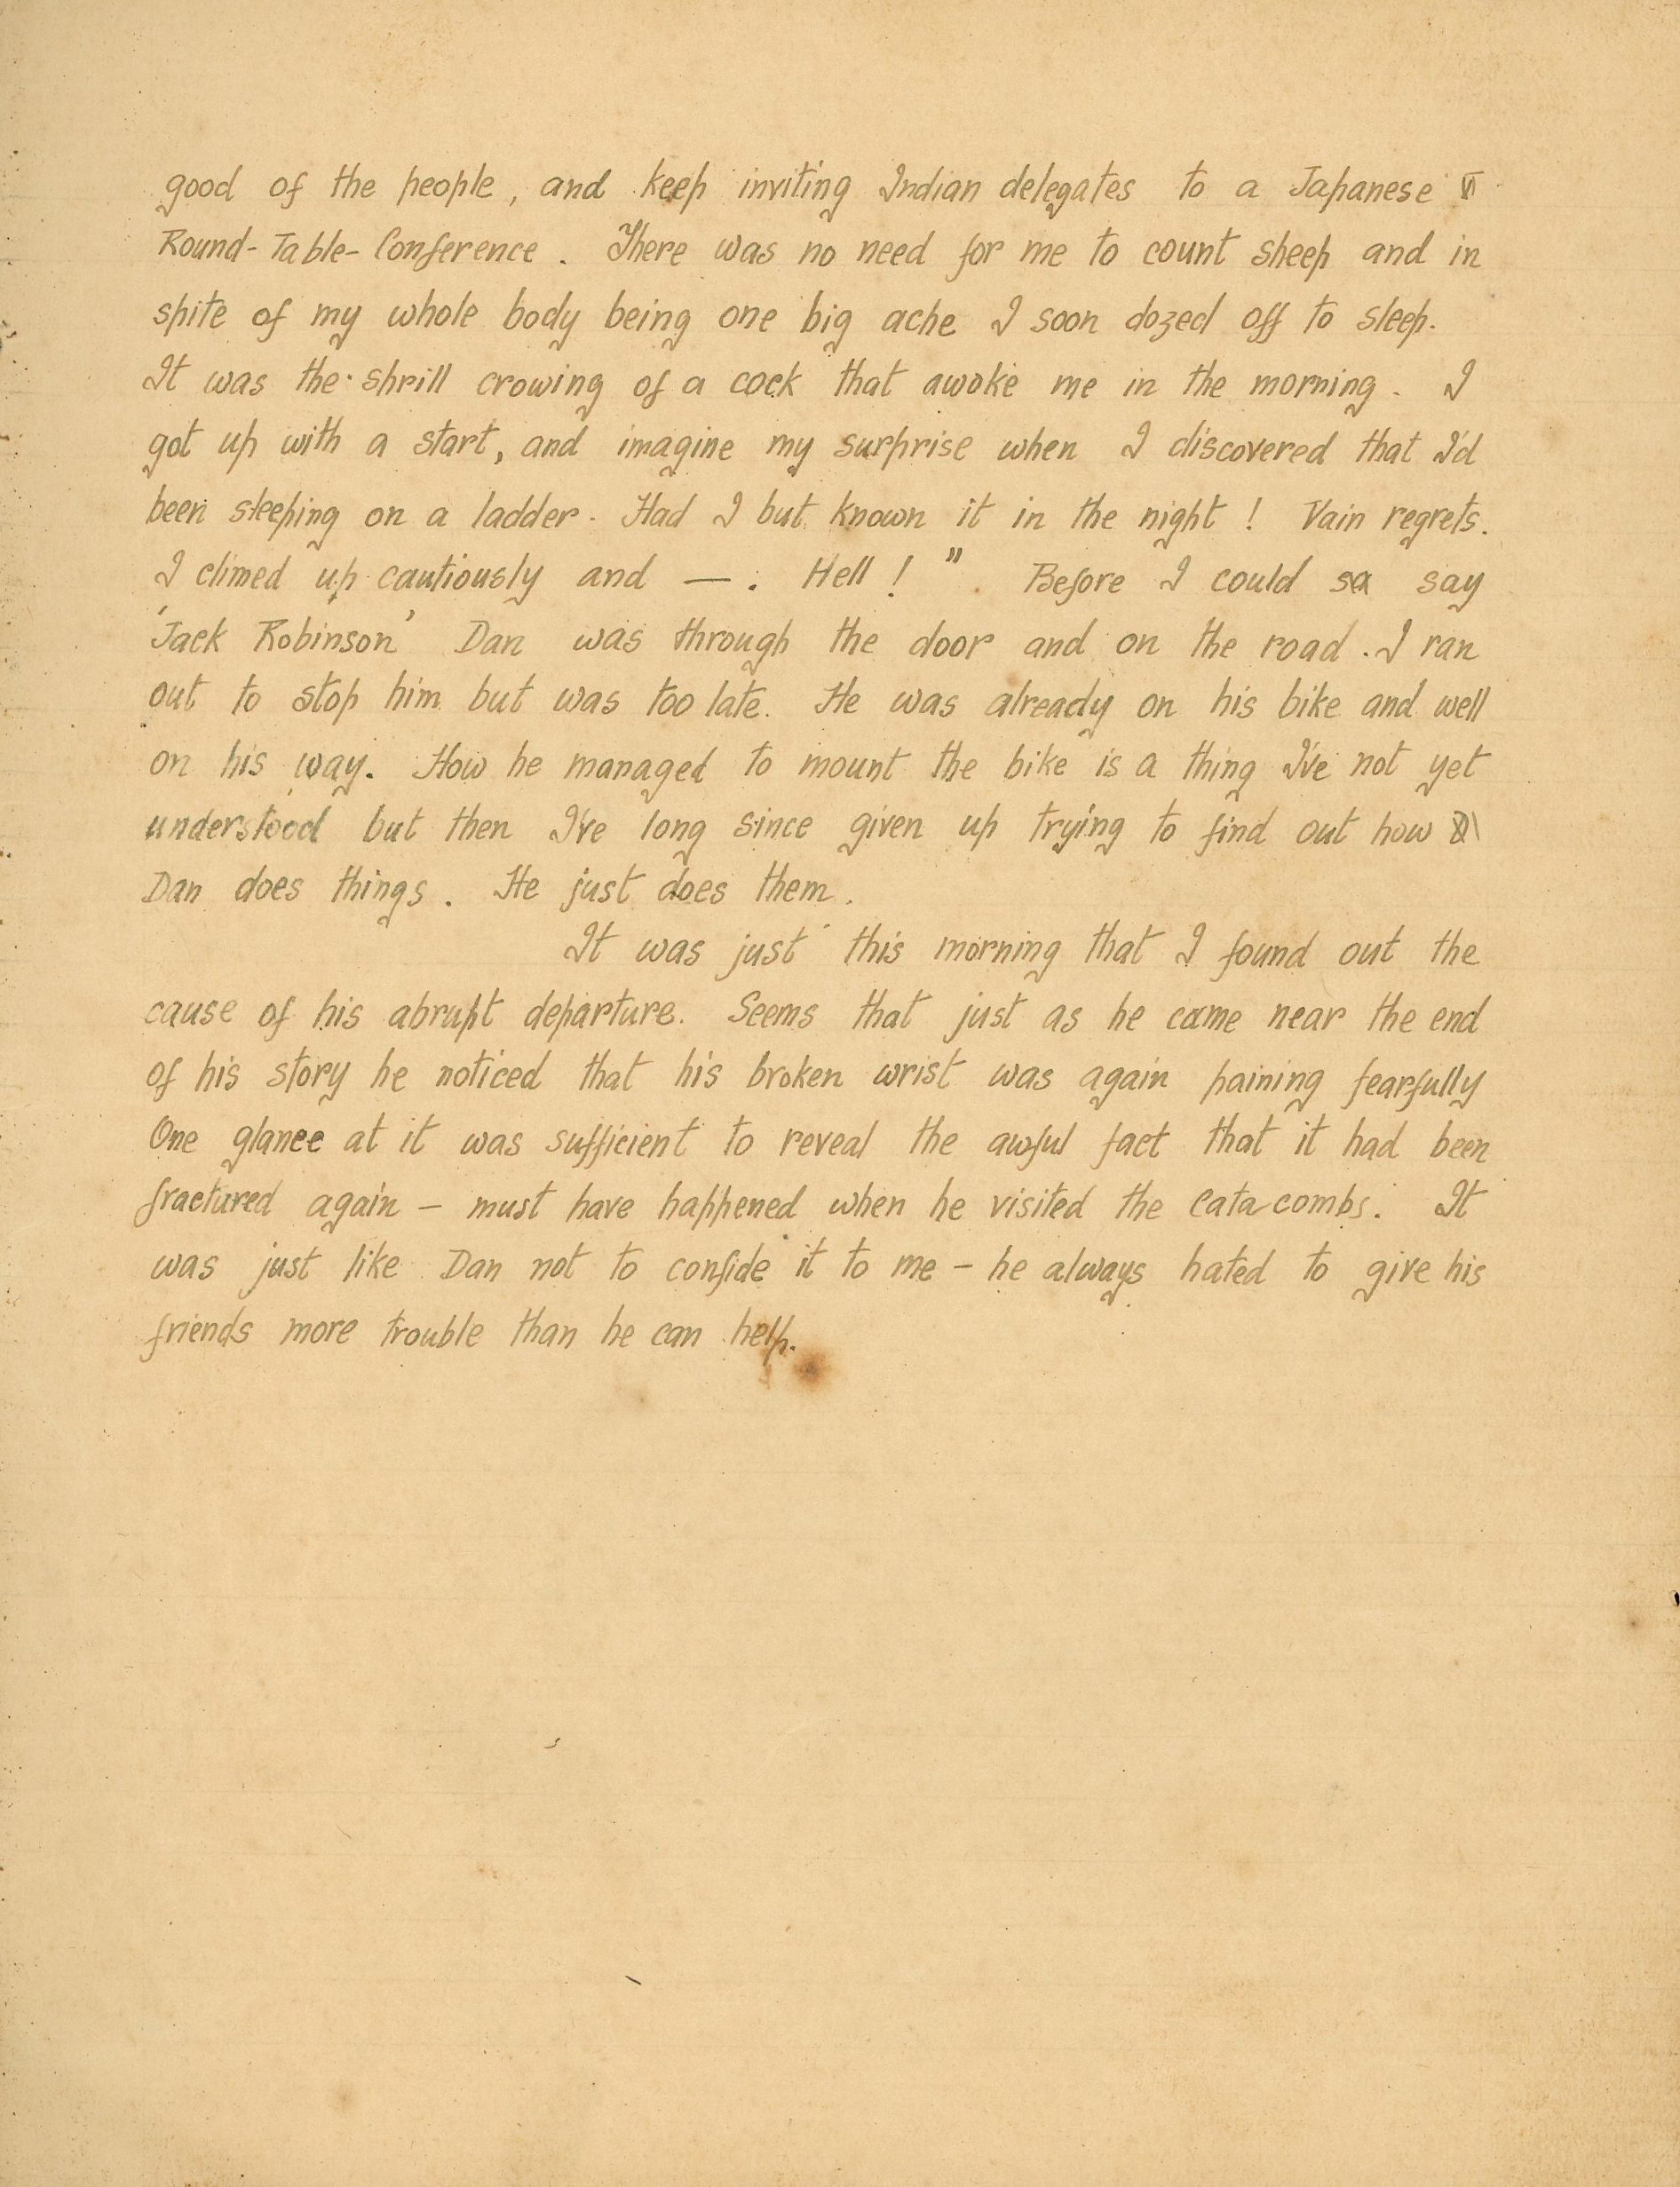 good of the people, and keep inviting Indian delegates to a Japanese
Round-Table-Conference. There was no need for me to count sheep and in
spite of my whole body being one big ache I soon dozed off to sleep.
It was the shrill crowing of a cock that awoke me in the morning. I
got up with a start, and imagine my surprise when I discovered that I'd
been sleeping on a ladder. Had I but known it in the night! Vain regrets.
I climed up cautiously and —. Hell!" Before I could sa say
'Jack Robinson' Dan was through the door and on the road. I ran
out to stop him but was too late. He was already on his bike and well
on his way. How he managed to mount the bike is a thing I've not yet
understood but then I've long since given up trying to find out how
Dan does things. He just does them.
It was just this morning that I found out the
cause of his abrupt departure. Seems that just as he came near the end
of his story he noticed that his broken wrist was again paining fearfully
One glance at it was sufficient to reveal the awful fact that it had been
fractured again — must have happened when he visited the Catacombs. It
was just like Dan not to confide it to me — he always hated to give his
friends more trouble than he can help.